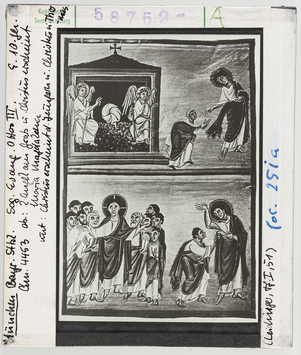 58752- A
München Bayr. Stbl. Sog. Evang. Ottos III
Clm 4453 ob: 2 Engel am Grab u. Christus erscheint
Maria Magdalena
unt: Christus erscheint d. Jüngern u. Christus u. Thomas
E. 10. Jh.
(oc. 251a
(Leidinger, H I, 51)